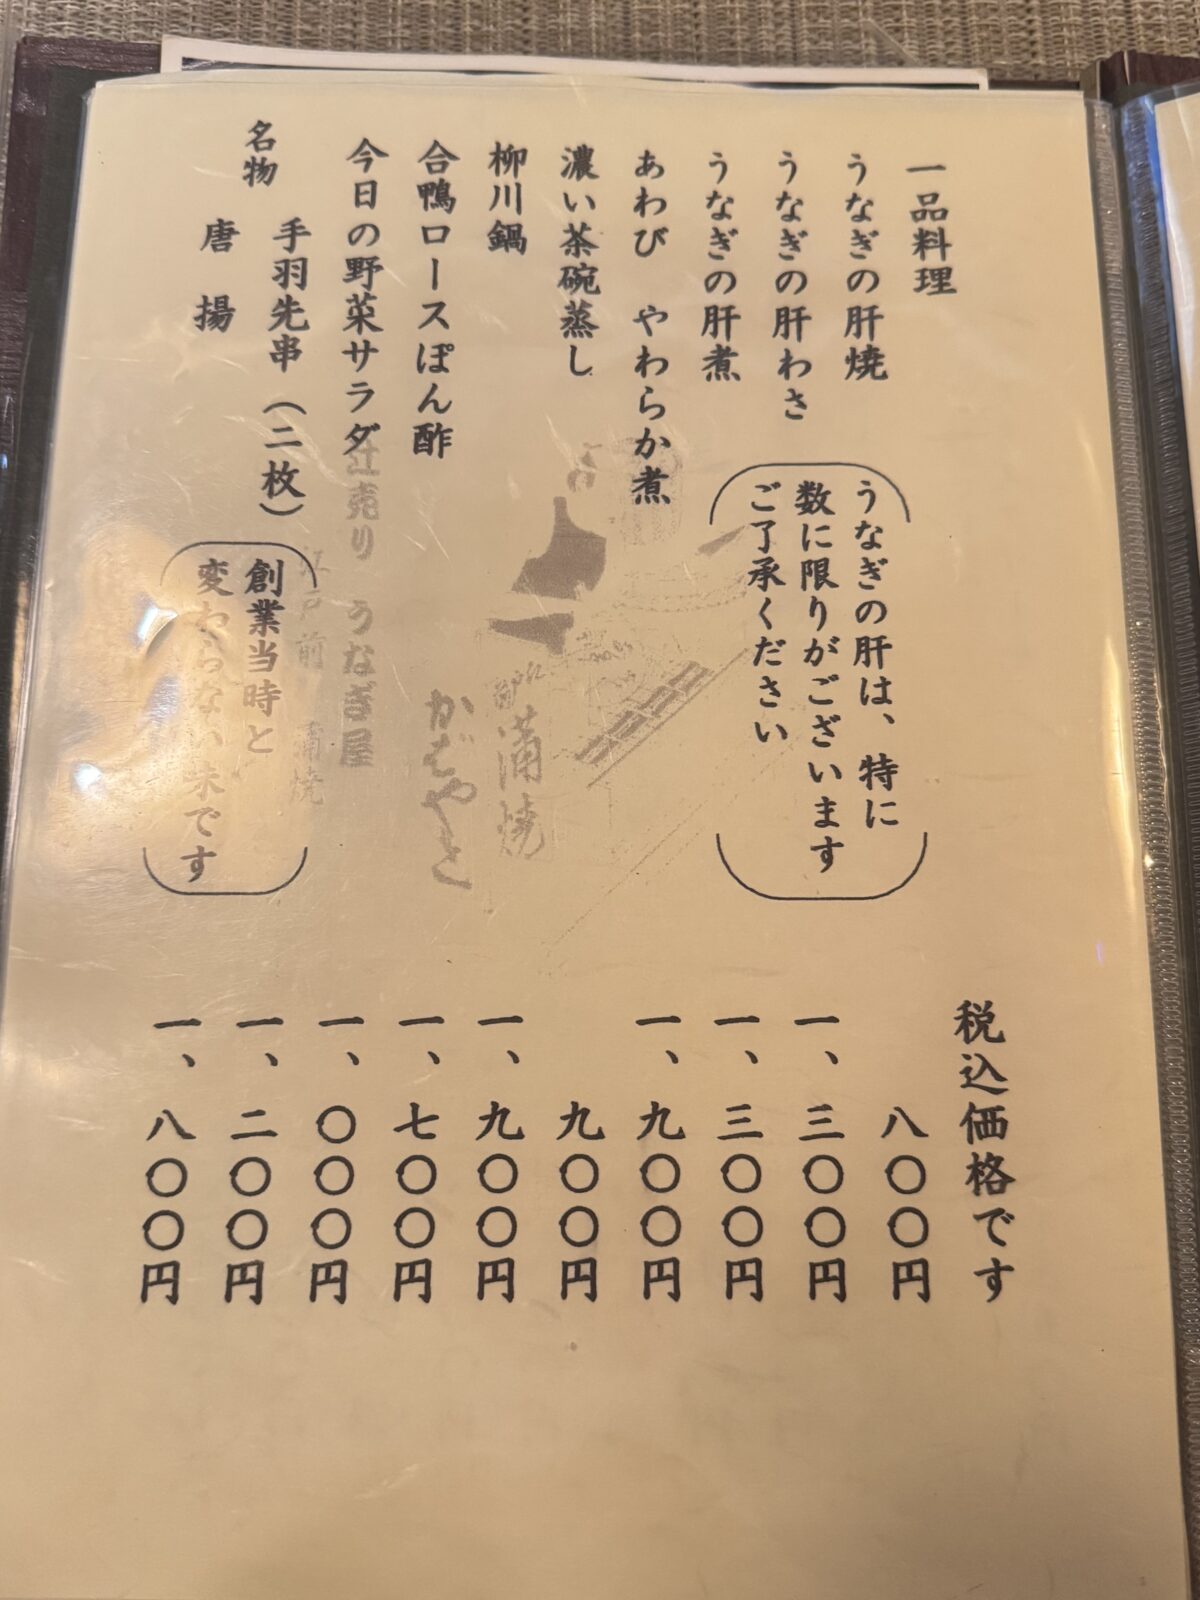 一品料理 税込価格です
うなぎの肝焼 八〇〇円
うなぎの肝わさ 一、三〇〇円
うなぎの肝煮 一、三〇〇円
（うなぎの肝は、特に
数に限りがございます
ご了承ください）
あわび やわらか煮 一、九〇〇円
濃い茶碗蒸し 九〇〇円
柳川鍋 一、九〇〇円
合鴨ロースぽん酢 一、七〇〇円
今日の野菜サラダ 一、〇〇〇円
名物 手羽先串（二枚） 一、二〇〇円
唐揚 一、八〇〇円
（創業当時と
変わらない味です）
蒲焼
かばやき
辻売り うなぎ屋
江戸前 蒲焼